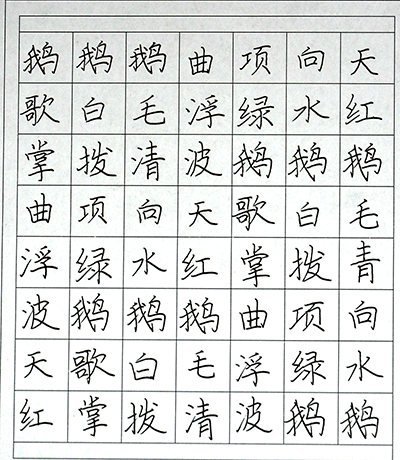 鹅鹅鹅曲项向天
歌白毛浮绿水红
掌拨清波鹅鹅鹅
曲项向天歌白毛
浮绿水红掌拨青
波鹅鹅鹅曲项向
天歌白毛浮绿水
红掌拨清波鹅鹅